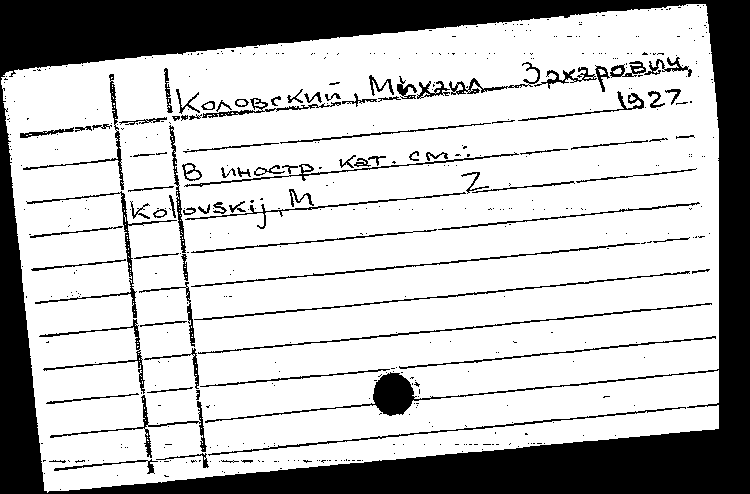 Коловский, Михаил Захарович,
1927
В иностр. кат. см.:
Kolovskij, M Z